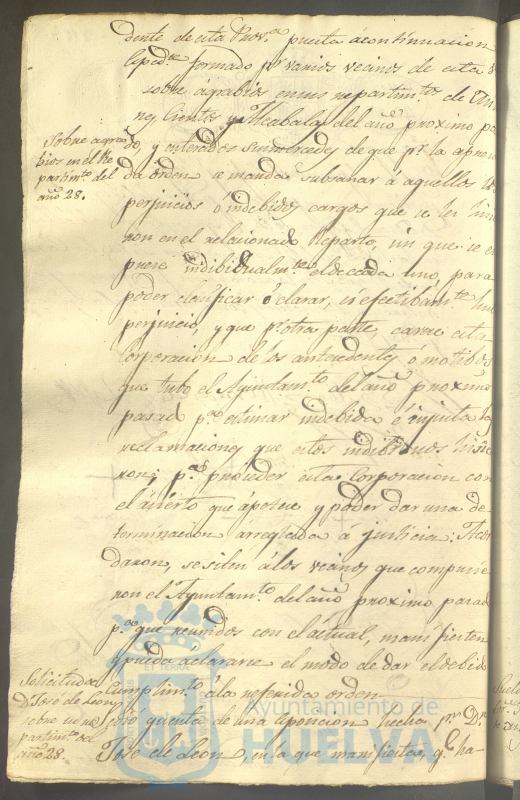 dente de esta Prov.ª puesta acontinuacion
exped.te formado p.r varios vecinos de esta
sobre agrabios en sus repartim.tos de
Cientos y Alcabalas del año proximo pa
Sobre agra
bios en el Re
partim.to del
año 28.
do, y enterados sus mercedes de que p.r la
da orden se manda subsanar á aquellos los
perjuicios ó indebidos cargos que se les hici
ron en el relacionado Reparto, sin que se es
prese indibidualm.te el de cada uno, para
poder clasificar ó clarar, si efectibam.te hubo
perjuicio, y que p.r otra parte carece esta
Corporacion de los antecedentes ó motibos
que tubo el Ayuntam.to del año proximo
pasad p.ª estimar indebida é injusta las
reclamaciones que estos indibiduos hicie
ron; p.ª proceder esta Corporacion con
el acierto que apetece y poder dar una de
terminacion arreglada á justicia: Acor
daron, se siten á los vecinos que compusie
ron el Ayuntam.to del año proximo pasad
p.ª que reunidos con el actual, manifiesten
y pueda aclararse el modo de dar el debido
cumplim.to á la referida orden
Solicitud de
D.n José de Leon
sobre su re
partim.to del
año 28.
Se dio quenta de una esposicion hecha p.r D.n
José de Leon, en la que manifiesta, q.e ha-
Ayuntamiento de
HUELVA